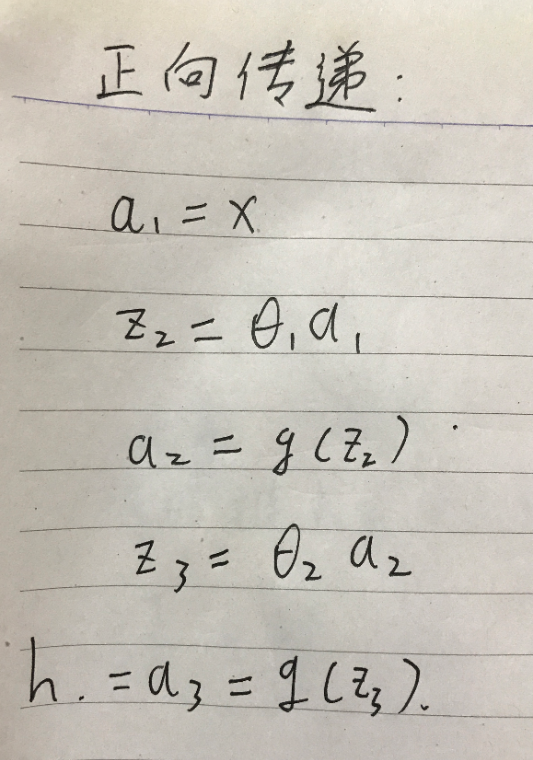 正向传递:
a₁ = x
z₂ = θ₁ a₁
a₂ = g(z₂)
z₃ = θ₂ a₂
h. = a₃ = g(z₃).